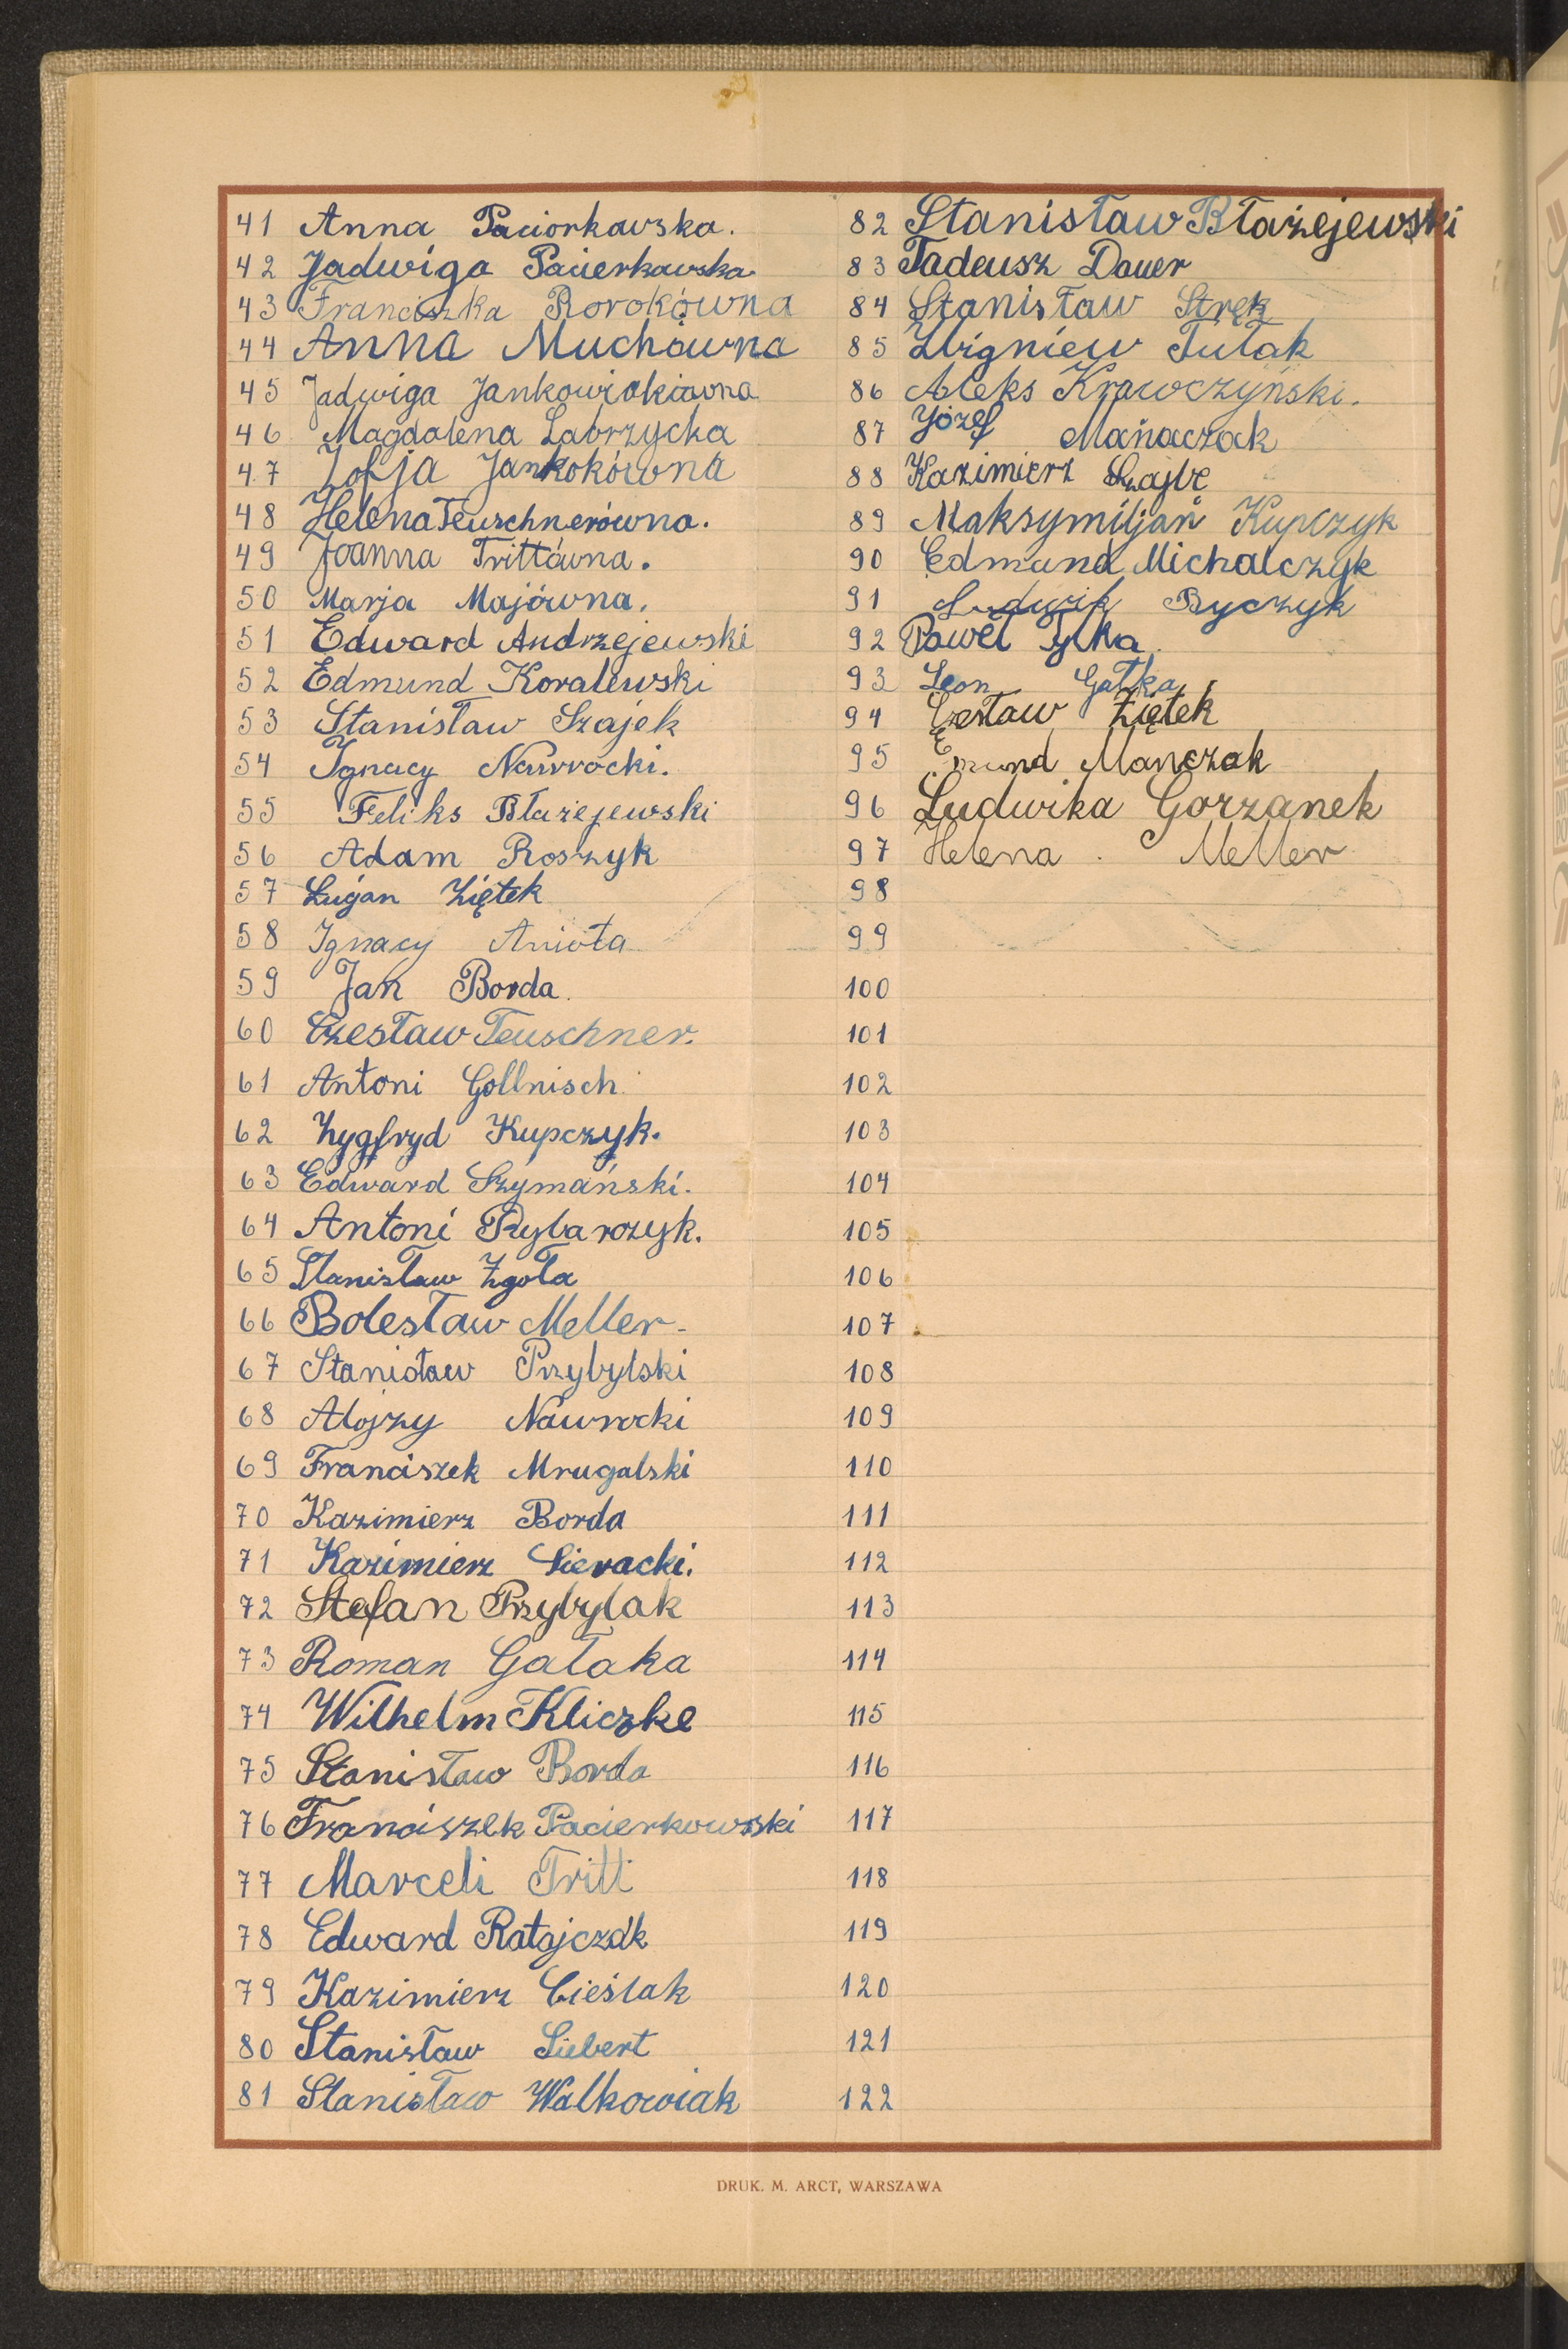 41 Anna Paciorkowska.
42 Jadwiga Pacierkowska
43 Franciszka Rorokówna
44 Anna Muchówna
45 Jadwiga Jankowiakówna
46 Magdalena Labrzycka
47 Zofja Jankokówna
48 Helena Teuschnerówna.
49 Joanna Trittówna.
50 Marja Majówna.
51 Edward Andrzejewski
52 Edmund Koralewski
53 Stanisław Szajek
54 Ignacy Nawrocki.
55 Feliks Błażejewski
56 Adam Roszyk
57 Lucjan Ziętek
58 Ignacy Anioła
59 Jan Borda.
60 Czesław Teuschner.
61 Antoni Gollnisch
62 Zygfryd Kupczyk.
63 Edward Szymański.
64 Antoni Rybarczyk.
65 Stanisław Zgoła
66 Bolesław Meller
67 Stanisław Przybylski
68 Alojzy Nawrocki
69 Franciszek Mrugalski
70 Kazimierz Borda
71 Kazimierz Sieracki.
72 Stefan Przybylak
73 Roman Gałaka
74 Wilhelm Kliczke
75 Stanisław Borda
76 Franciszek Pacierkowski
77 Marceli Tritt
78 Edward Ratajczak
79 Kazimierz Cieślak
80 Stanisław Siebert
81 Stanisław Walkowiak
82 Stanisław Błażejewski
83 Tadeusz Dauer
84 Stanisław Stręk
85 Zbigniew Tułak
86 Aleks Krawczyński.
87 Józef Mańaczak
88 Kazimierz Szajbe
89 Maksymiljan Kupczyk
90 Edmund Michalczyk
91 Ludwik Byczyk
92 Paweł Tylka.
93 Leon Gałka
94 Czesław Ziętek
95 Emund Manczak
96 Ludwika Gorzanek
97 Helena Meller
98
99
100
101
102
103
104
105
106
107
108
109
110
111
112
113
114
115
116
117
118
119
120
121
122
DRUK. M. ARCT, WARSZAWA